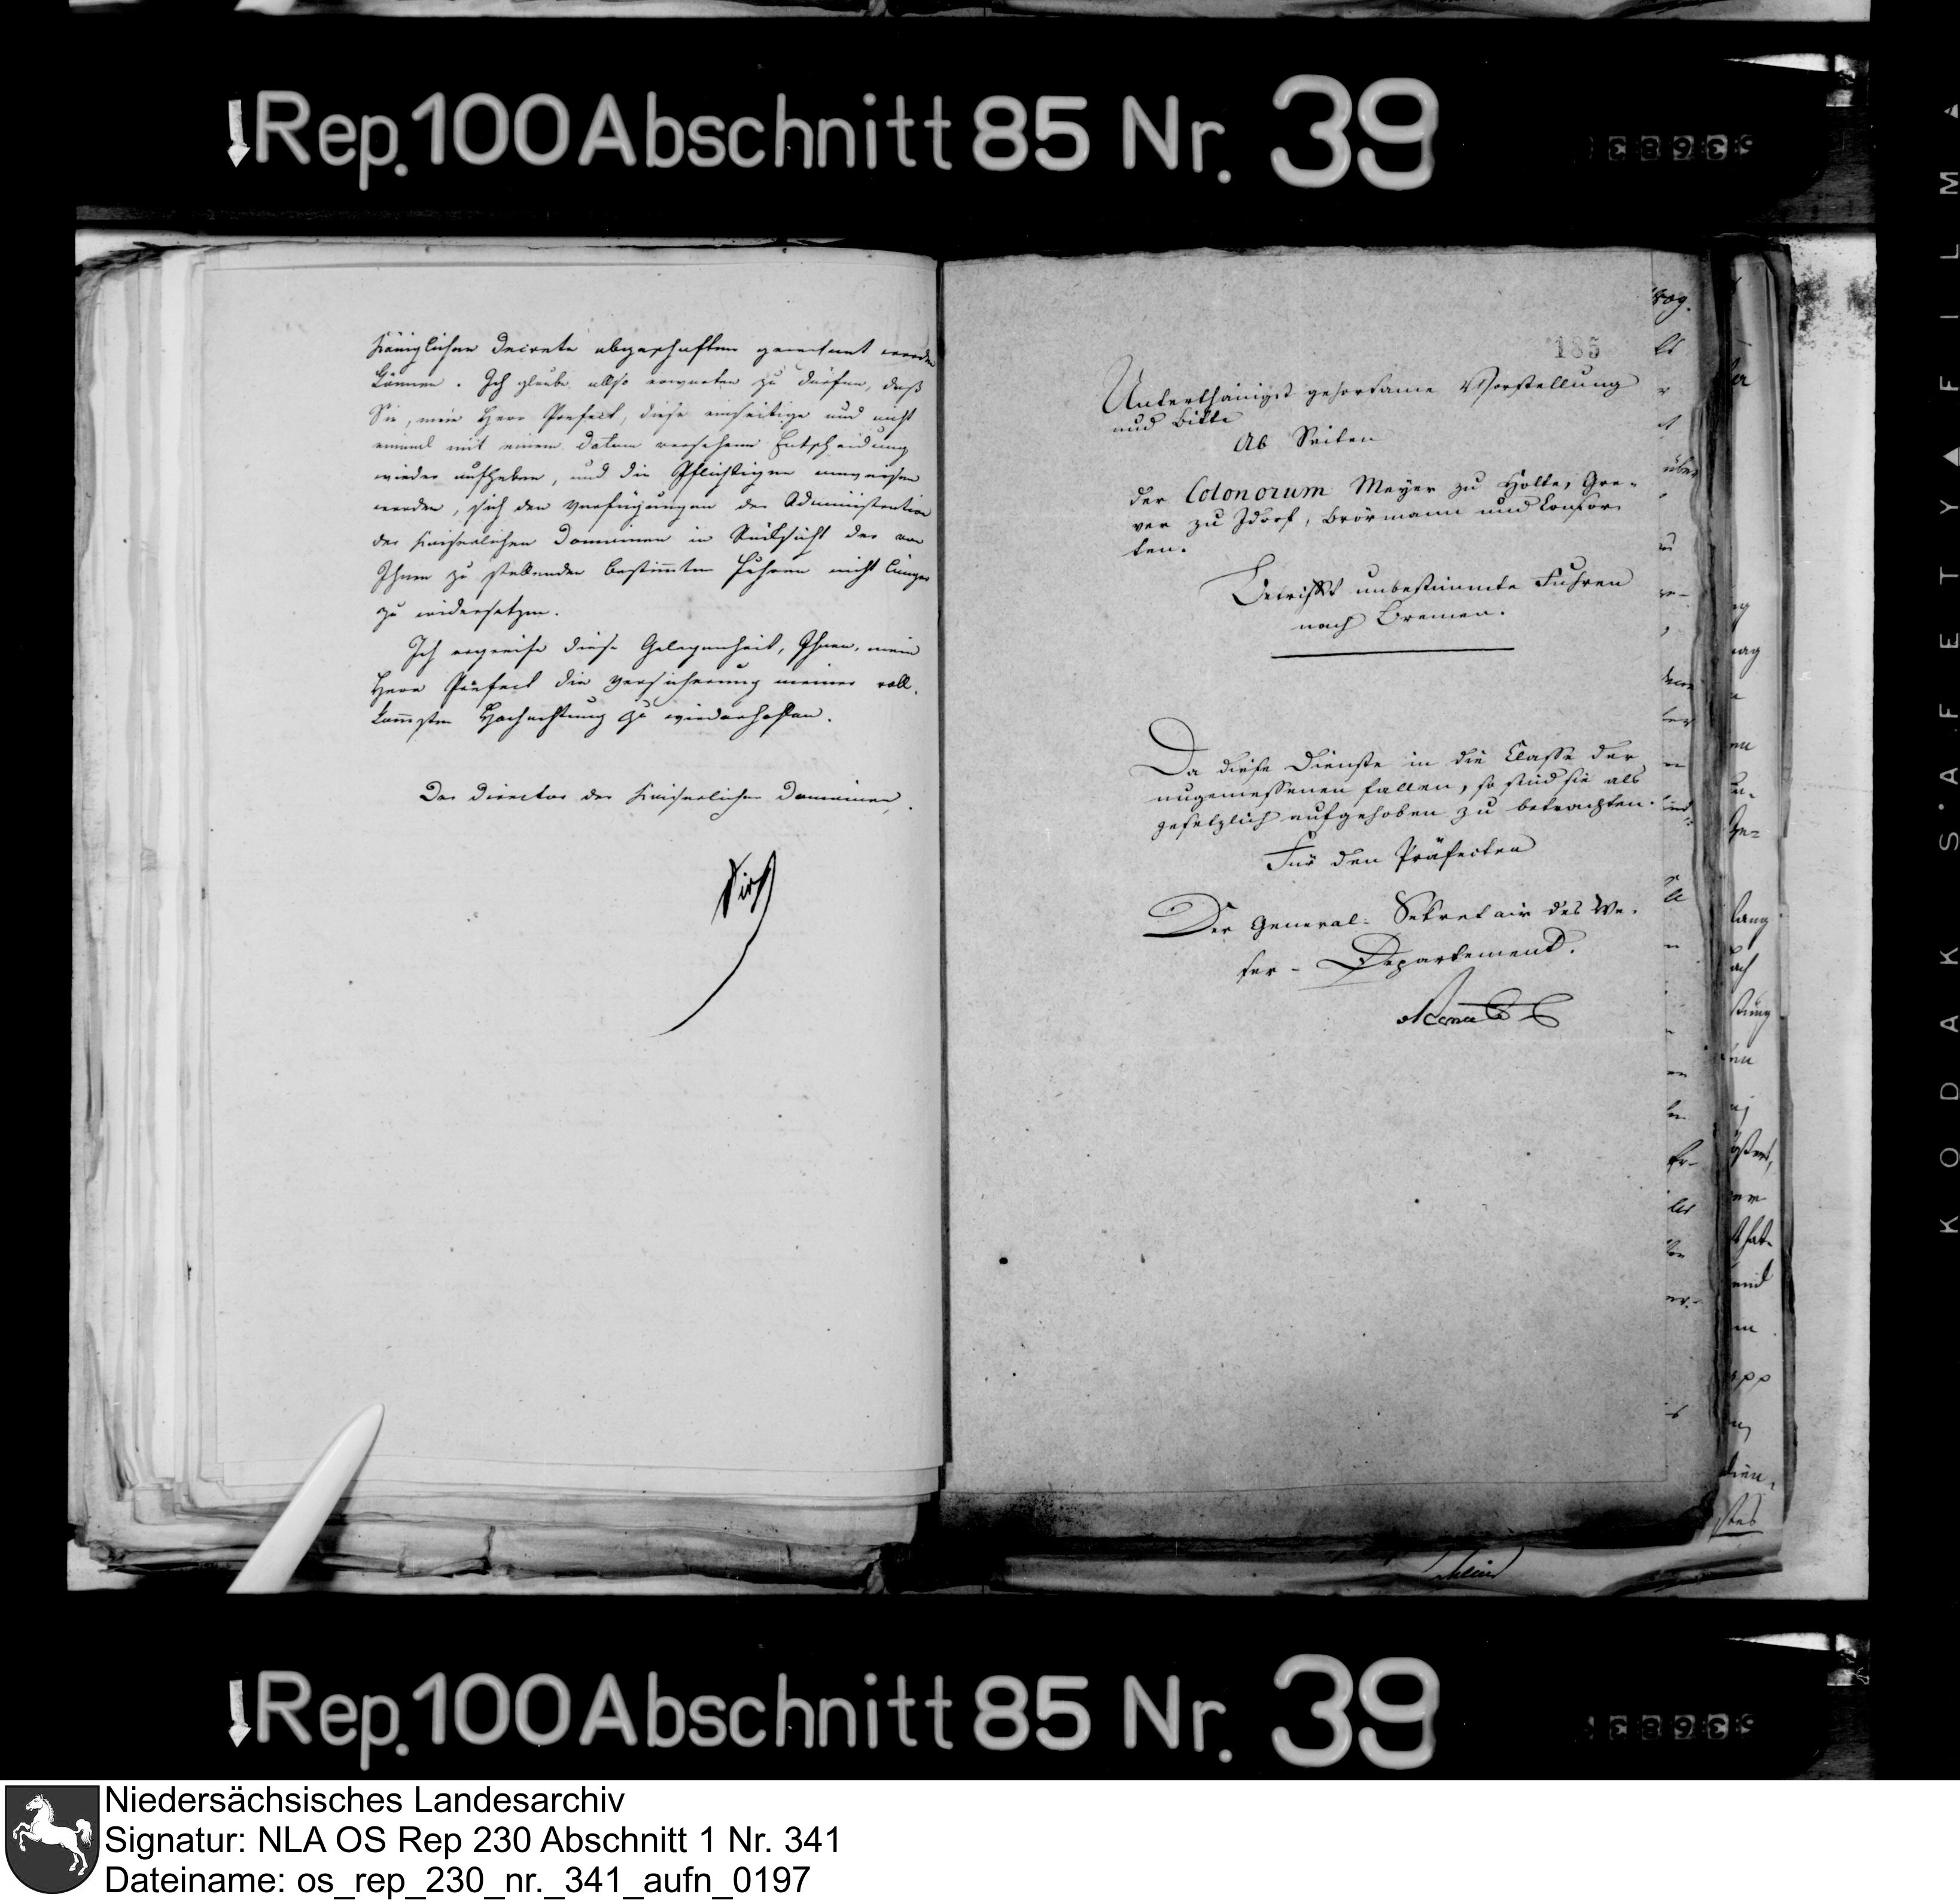 Rep. 100 Abschnitt 85 Nr. 39
Königlichen Decrete abgeschafften gerechnet werden
können. Ich glaube also erwarten zu dürfen, daß
Sie, mein Herr Präfect, diese einseitige und nicht
einmal mit einem Datum versehene Entscheidung
wieder aufheben, und die Pflichtigen anweisen
werden, sich den Verfügungen der Administration
der Kaiserlichen Domainen in Rücksicht der von
Ihnen zu stellenden bestimmten Fuhren nicht länger
zu widersetzen.
Ich ergreife diese Gelegenheit, Ihnen, mein
Herr Präfect die Versicherung meiner voll-
kommsten Hochachtung zu wiederhohlen.
Der Director der Kaiserlichen Domainen.
185
Unterthänigst gehorsame Vorstellung
und Bitte
Ab Seiten
der Colonorum Meyer zu Holte, Gre-
ver zu Idorf, Brörmann und Consor-
ten.
Betrifft unbestimmte Fuhren
nach Bremen.
Da diese Dienste in die Classe der
ungemessenen fallen, so sind sie als
gesetzlich aufgehoben zu betrachten.
Für den Präfecten
Der General-Sekretair des We-
ser-Departement.
Rep. 100 Abschnitt 85 Nr. 39
KODAK SAFETY FILM
Niedersächsisches Landesarchiv
Signatur: NLA OS Rep 230 Abschnitt 1 Nr. 341
Dateiname: os_rep_230_nr._341_aufn_0197